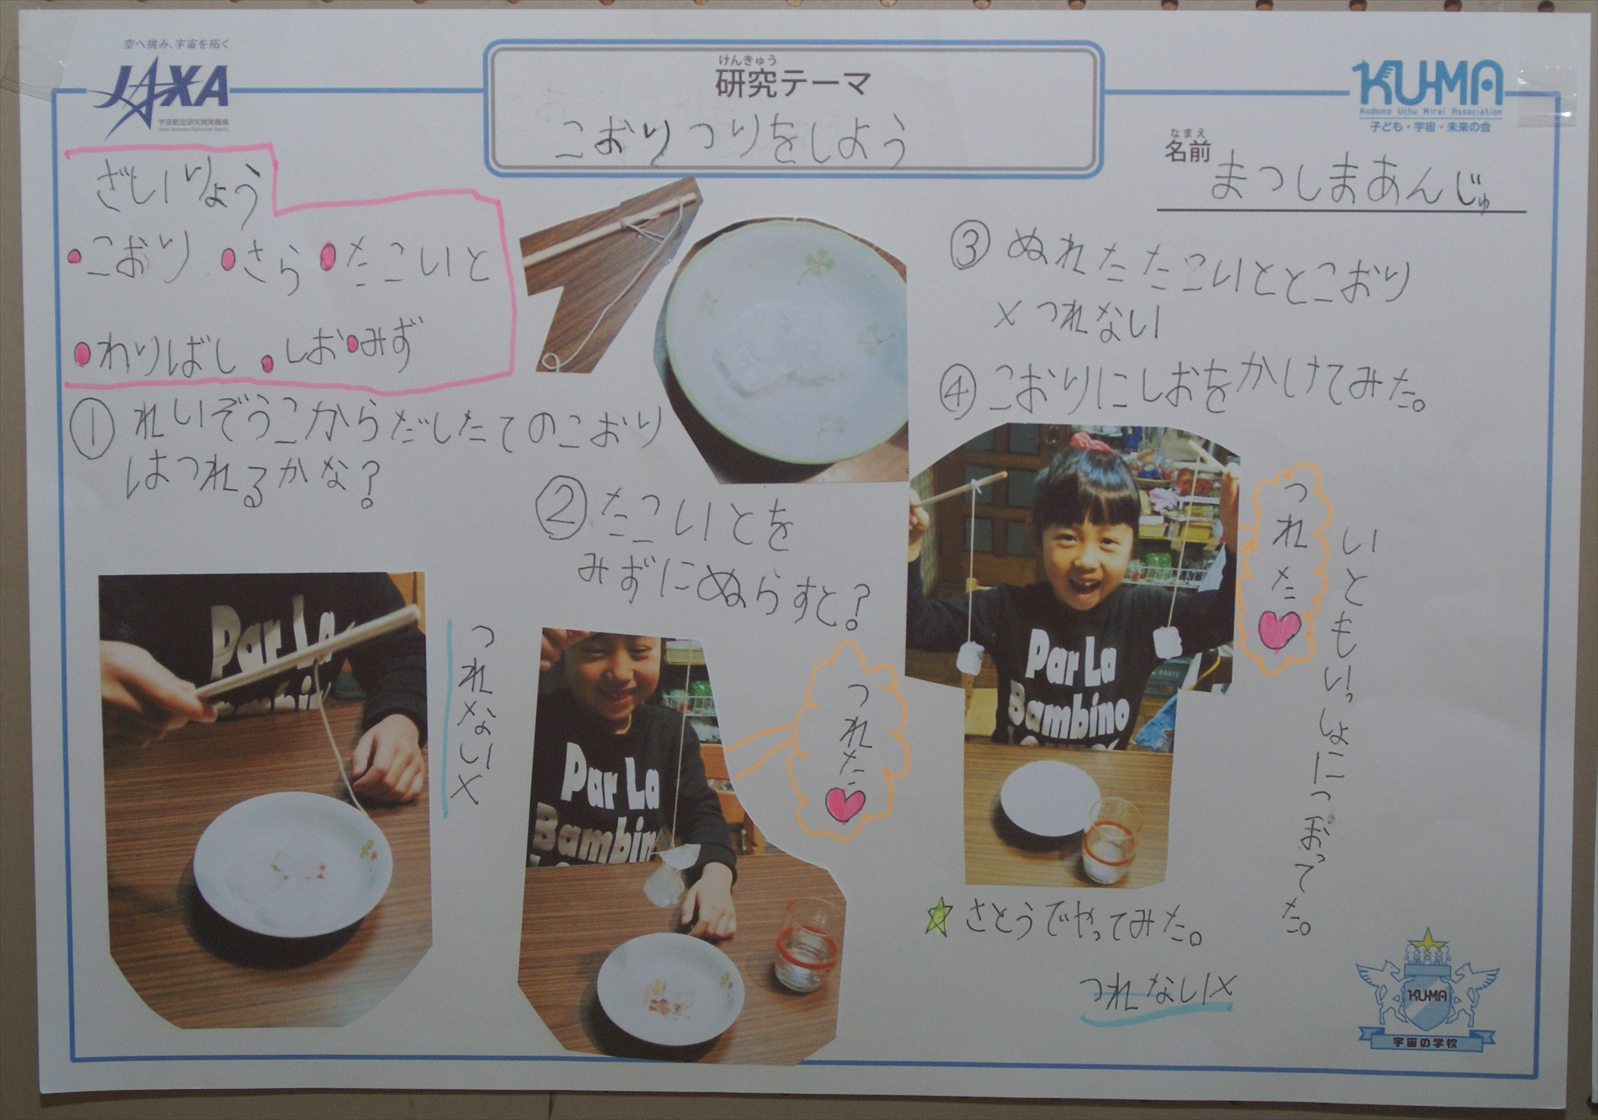 空へ挑み、宇宙を拓く
JAXA
宇宙航空研究開発機構
Japan Aerospace Exploration Agency
けんきゅう
研究テーマ
こおりつりをしよう
KU-MA
Kodomo Uchu Mirai Association
子ども・宇宙・未来の会
なまえ
名前
まつしまあんじゅ
ざいりょう
こおり さら たこいと
わりばし しお みず
① れいぞうこからだしたてのこおり
はつれるかな?
つれない×
② たこいとを
みずにぬらすと?
つれた
③ ぬれたたこいととこおり
× つれない
④ こおりにしおをかけてみた。
つれた
いともいっしょにこおってた。
さとうでやってみた。
つれない×
Par La
Bambino
Par La
Bambino
Par La
Bambino
KU-MA
宇宙の学校